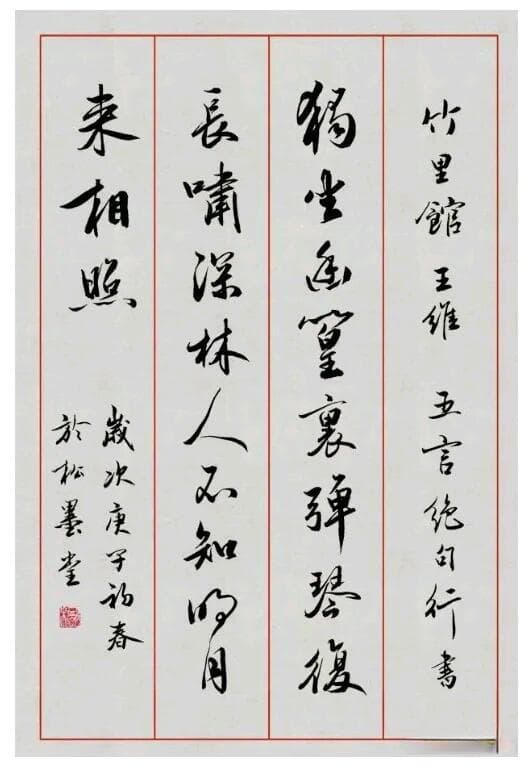 竹里館 王維 五言絶句行書
獨坐幽篁裏彈琴復
長嘯深林人不知明月
来相照
歲次庚子初春
於松墨堂